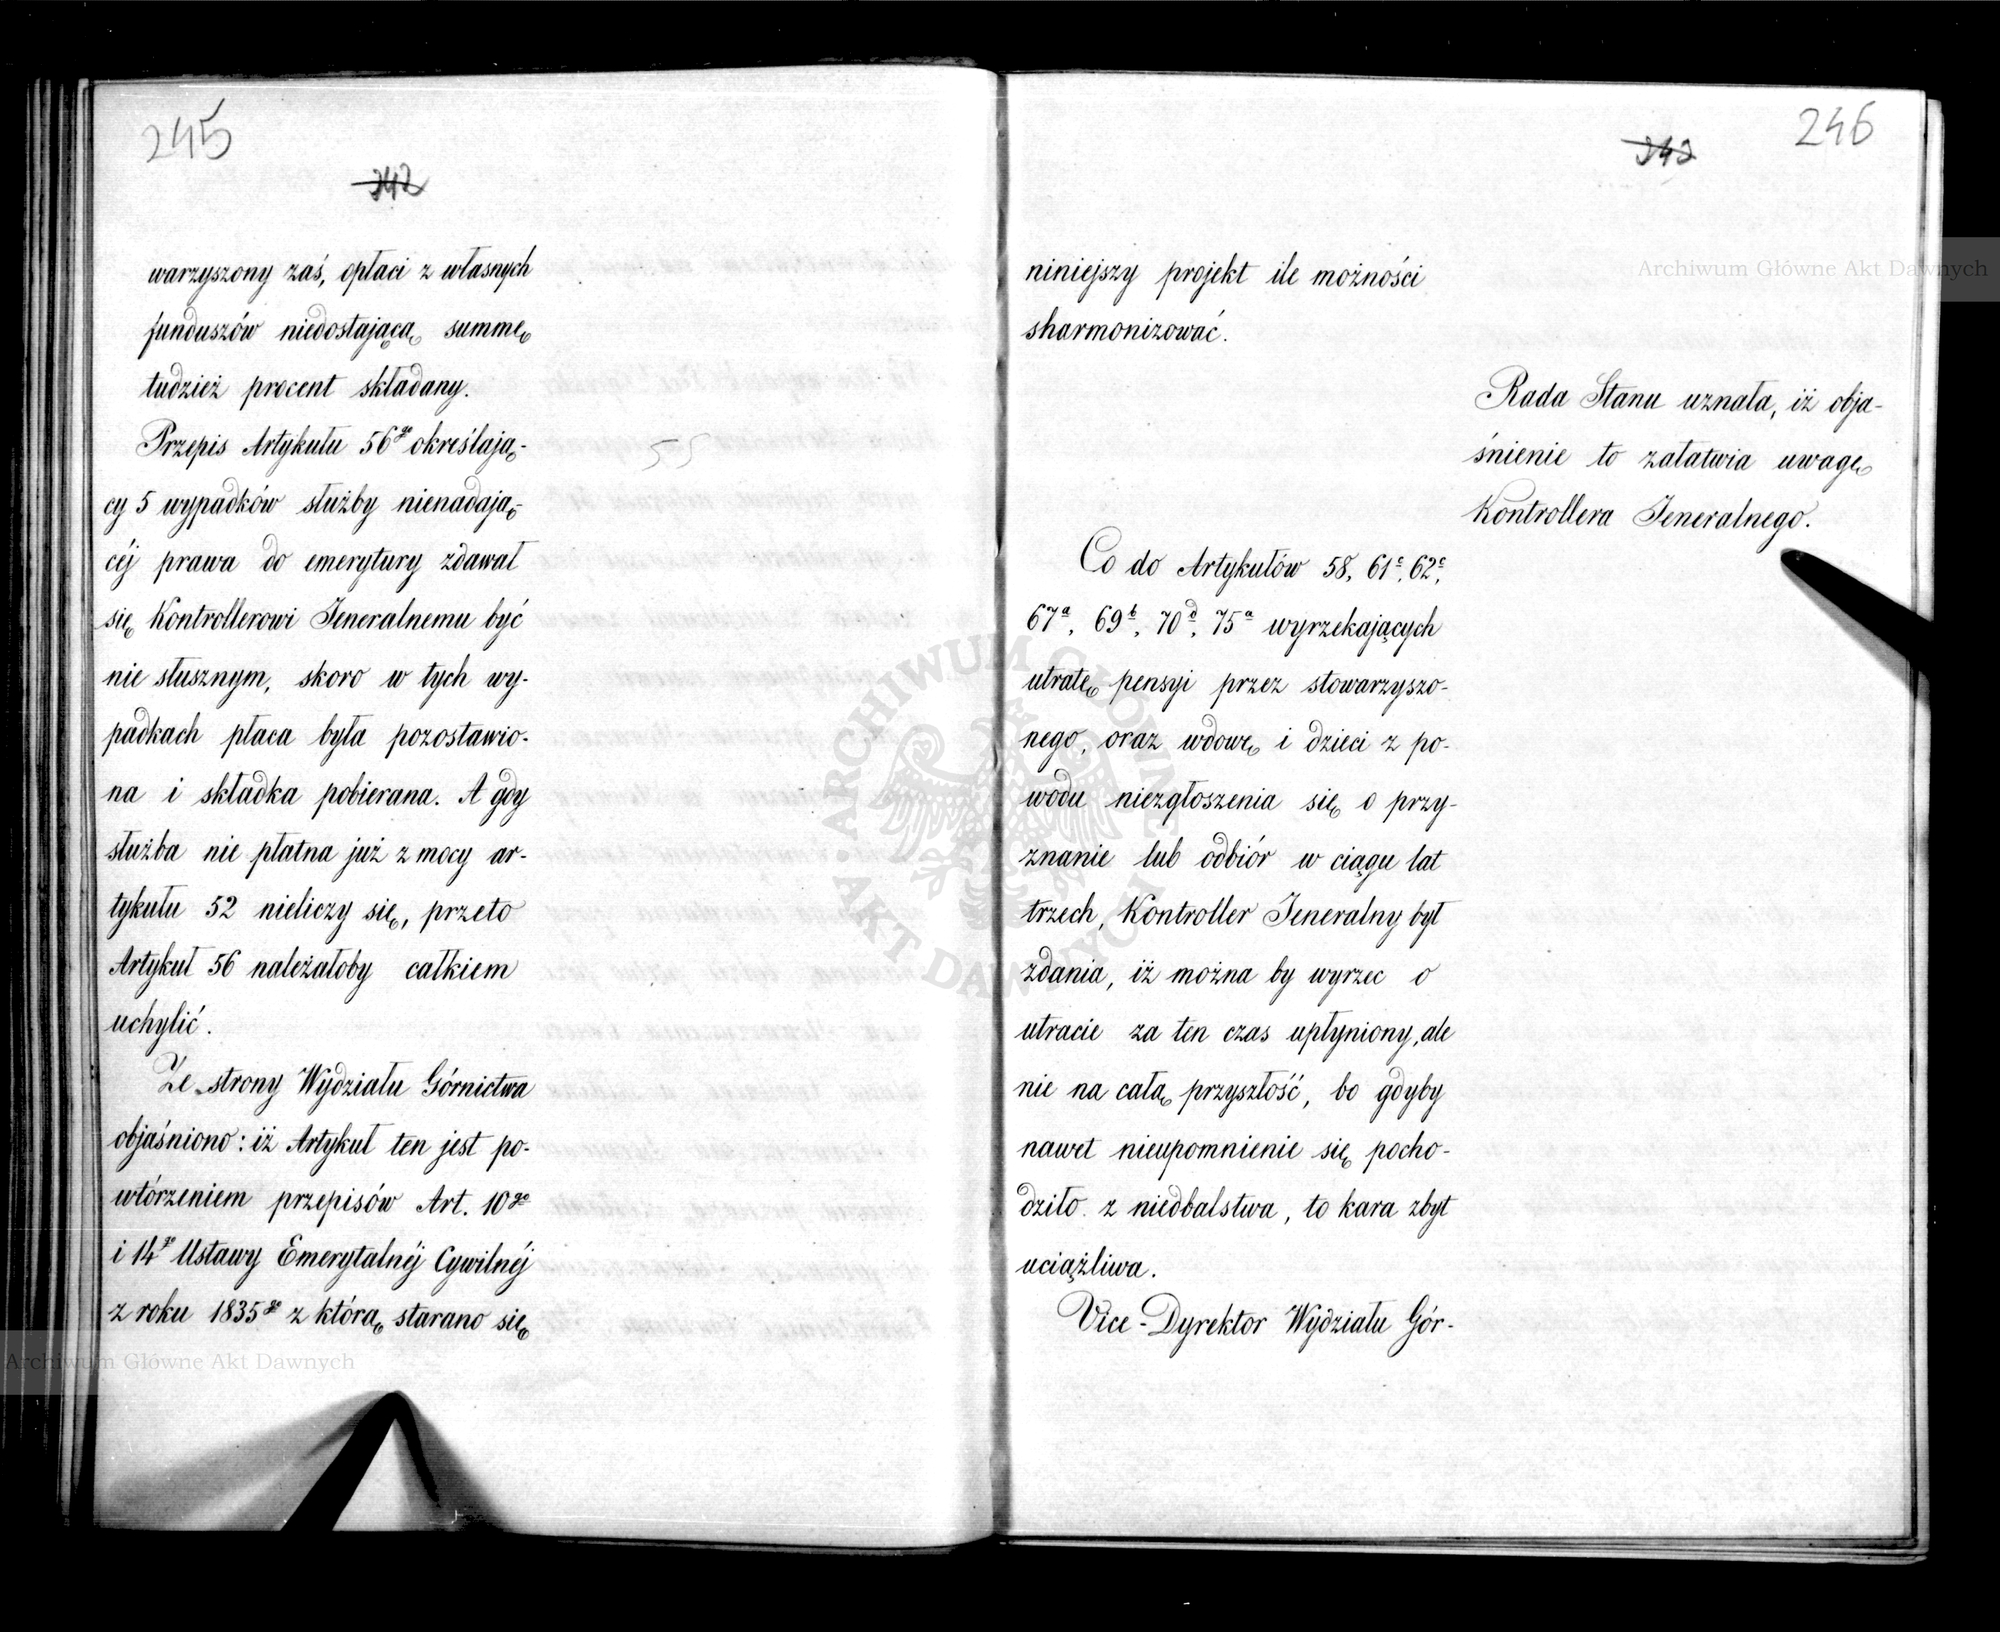 245
242
warzyszony zaś, opłaci z własnych
funduszów niedostającą summę
tudzież procent składany.
Przepis Artykułu 56go określają-
cy 5 wypadków służby nienadają-
céj prawa do emerytury zdawał
się Kontrollerowi Jeneralnemu być
nie słusznym, skoro w tych wy-
padkach płaca była pozostawio-
na i składka pobierana. A gdy
służba nie płatna już z mocy ar-
tykułu 52 nieliczy się, przeto
Artykuł 56 należałoby całkiem
uchylić.
Ze strony Wydziału Górnictwa
objaśniono: iż Artykuł ten jest po-
wtórzeniem przepisów Art. 10go
i 14go Ustawy Emerytalnéj Cywilnéj
z roku 1835go z którą starano się
55
246
243
niniejszy projekt ile możności
sharmonizować.
Rada Stanu uznała, iż obja-
śnienie to załatwia uwagę
Kontrollera Jeneralnego.
Co do Artykułów 58, 61c, 62c,
67a, 69b, 70d, 75a wyrzekających
utratę pensyi przez stowarzyszo-
nego, oraz wdowę i dzieci z po-
wodu niezgłoszenia się o przy-
znanie lub odbiór w ciągu lat
trzech, Kontroller Jeneralny był
zdania, iż można by wyrzec o
utracie za ten czas upłyniony, ale
nie na całą przyszłość, bo gdyby
nawet nieupomnienie się pocho-
dziło z niedbalstwa, to kara zbyt
uciążliwa.
Vice-Dyrektor Wydziału Gór-
Archiwum Główne Akt Dawnych
Archiwum Główne Akt Dawnych
ARCHIWUM GŁÓWNE AKT DAWNYCH